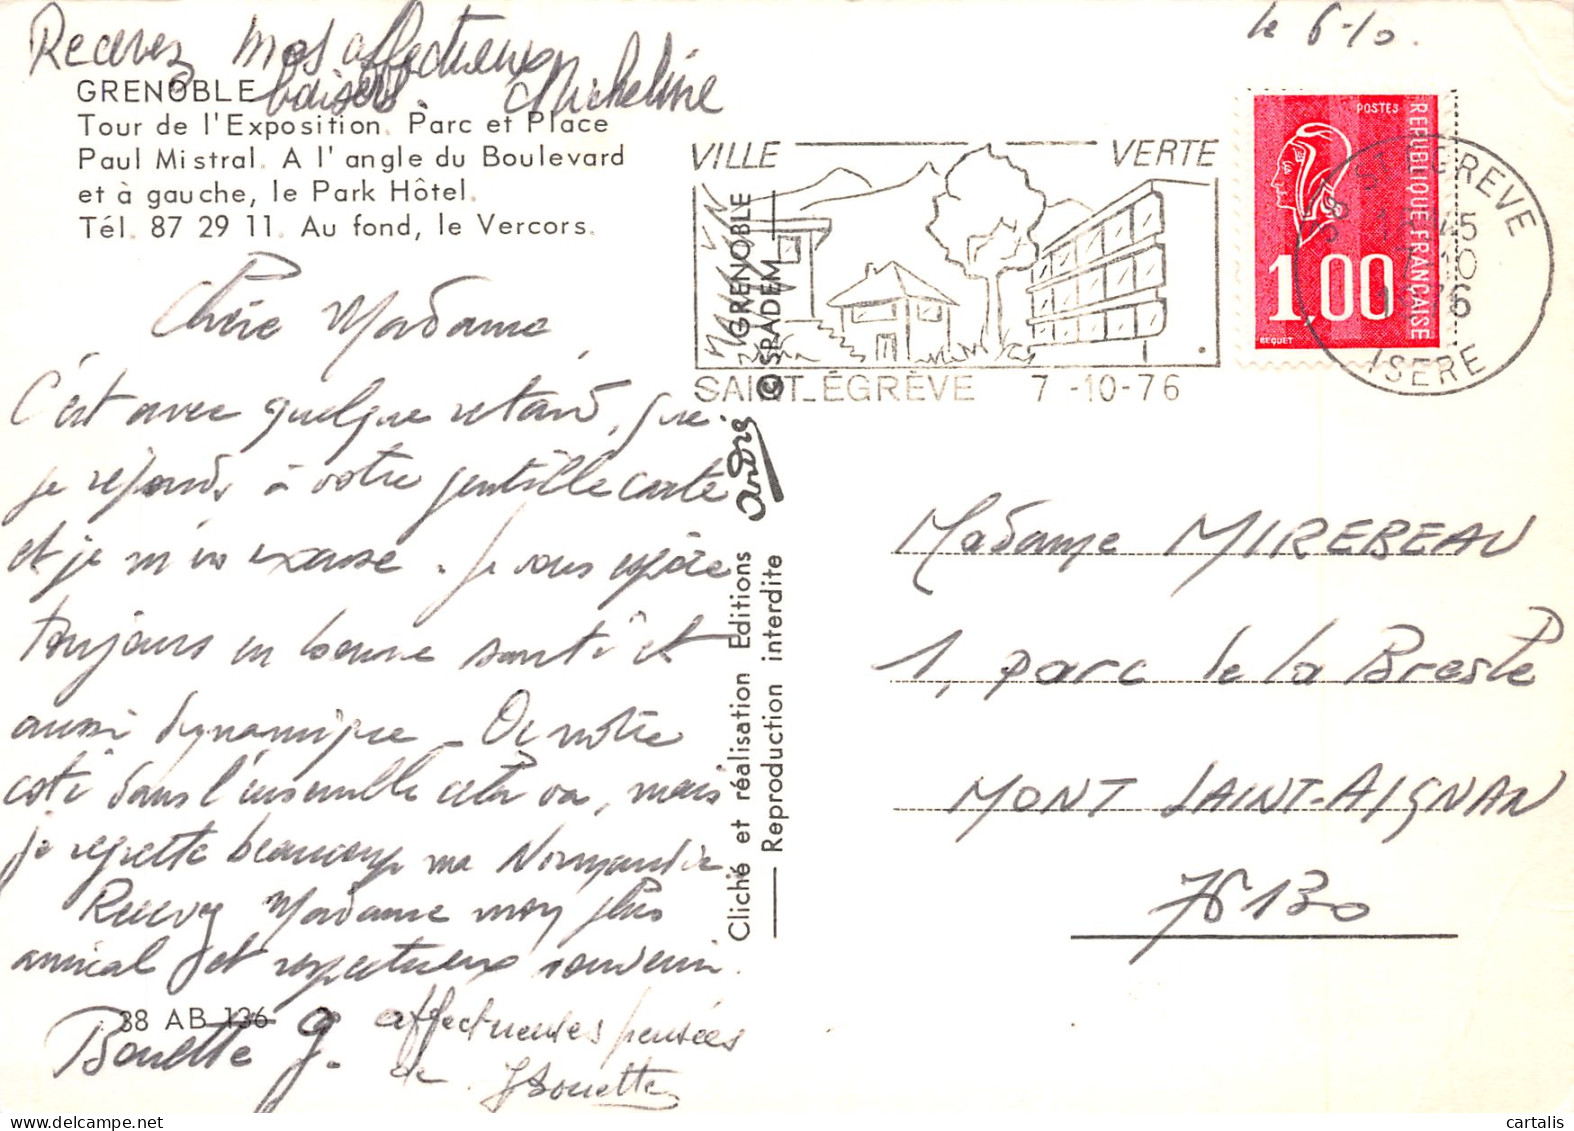 le 6-10.
Recevez mes affectueux
baisers. Micheline
GRENOBLE
Tour de l'Exposition. Parc et Place
Paul Mistral. A l'angle du Boulevard
et à gauche, le Park Hôtel.
Tél. 87 29 11. Au fond, le Vercors.
VILLE VERTE
SAINT-ÉGRÈVE 7-10-76
POSTES
REPUBLIQUE FRANÇAISE
1,00
BEQUET
38 ST EGREVE
45
10
76
ISERE
Chère Madame,
C'est avec quelque retard, que
je réponds à votre gentille carte
et je m'en excuse. Je vous espère
toujours en bonne santé et
aussi dynamique - De notre
coté dans l'ensemble cela va, mais
je regrette beaucoup ma Normandie
Recevez Madame mon plus
amical et respectueux souvenir.
38 AB 136
Bouette g.
affectueuses pensées
de J Bouette
GRENOBLE
© SPADEM
André
Cliché et réalisation Editions
Reproduction interdite
Madame MIREBEAU
1, parc de la Bresle
MONT SAINT-AIGNAN
76130
www.cartalis.com